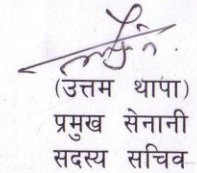 (उत्तम थापा)
प्रमुख सेनानी
सदस्य सचिव